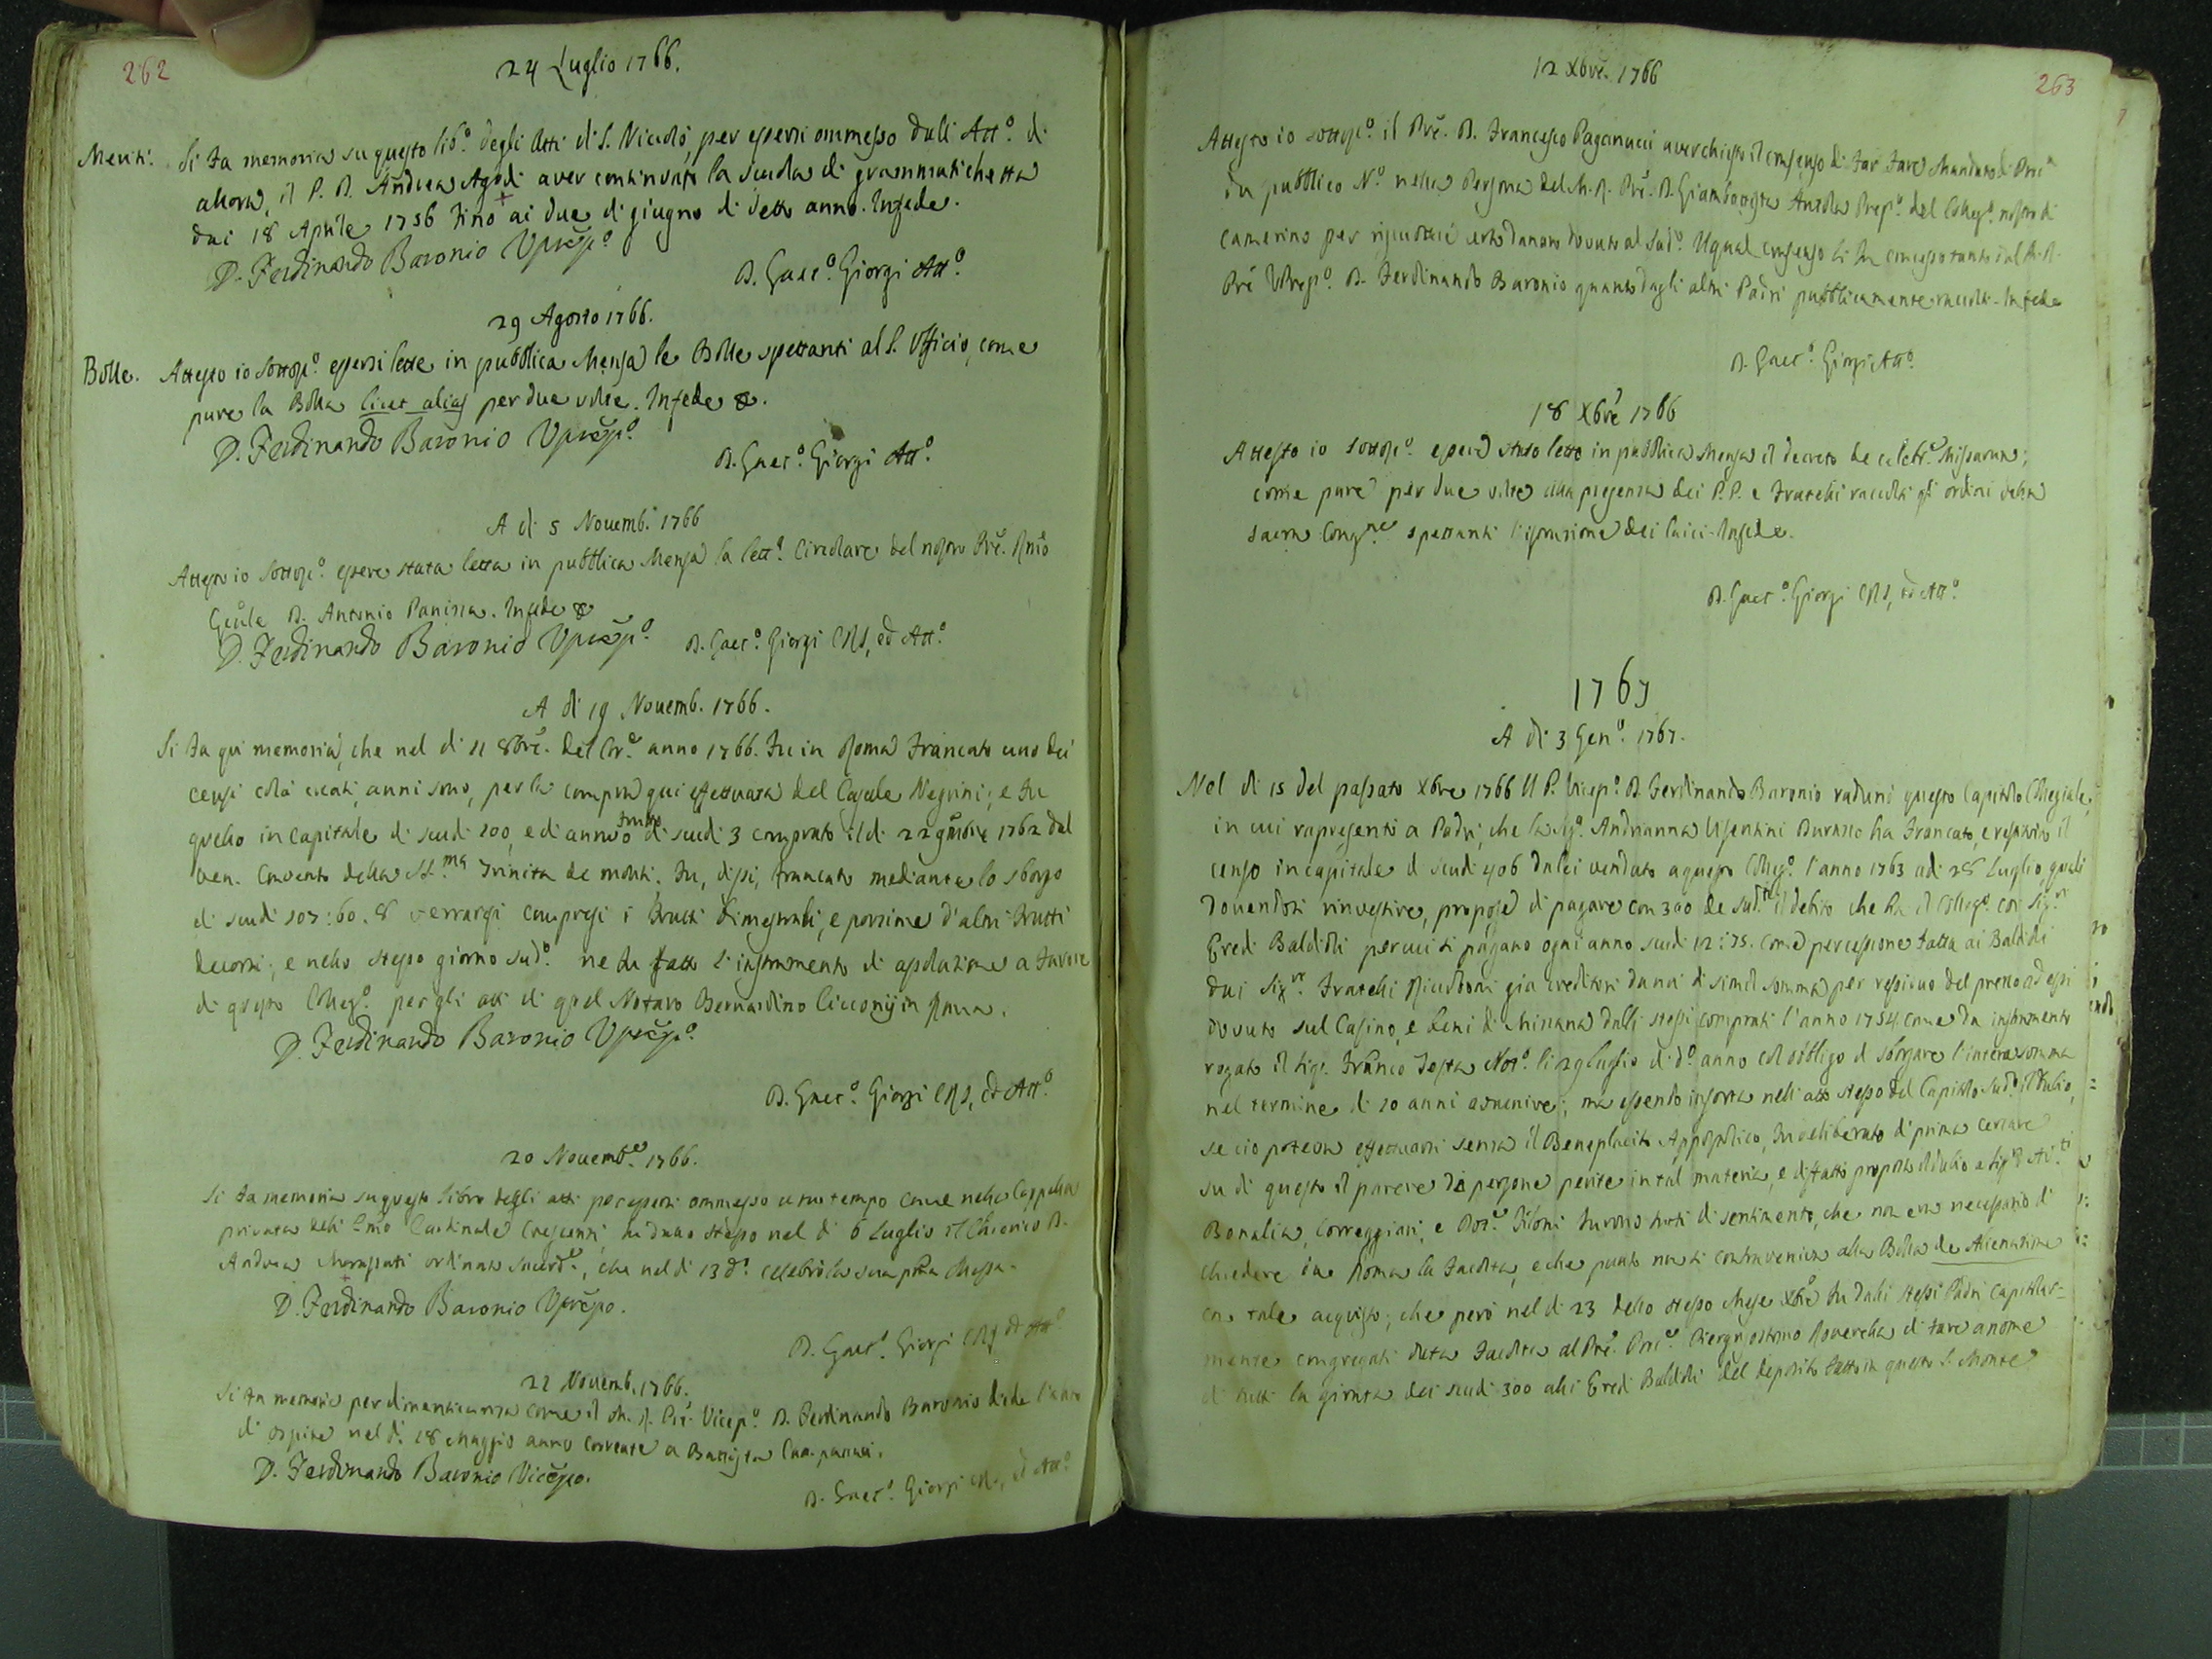 262
24 Luglio 1766.
Meriti. Si fa memoria su questo lib.o degli Atti di S. Niccolò, per essersi ommesso dall' Att.o di
allora, il P. D. Andrea Agodi aver continuato la scuola di grammatichetta
dai 18 Aprile 1756 fino ai due di giugno di detto anno. In fede.
D. Ferdinando Baronio Vpręp.o
D. Gaet.o Giorgi Att.o
29 Agosto 1766.
Bolle. Attesto io sottos.o essersi lette in pubblica Mensa le Bolle spettanti al S. Officio, come
pure la Bolla licet alias per due volte. In fede
D. Ferdinando Baronio Vpręp.o
D. Gaet.o Giorgi Att.o
A di 5 Novemb.e 1766
Attesto io sottos.o essere stata letta in pubblica Mensa la lett.a Circolare del nostro Prē. Rmo
Gēnle D. Antonio Panizza. In fede
D. Ferdinando Baronio Vpręp.o D. Gaet.o Giorgi CRS, ed Att.o
A di 19 Novemb. 1766.
Si fa qui memoria, che nel di 11 8bre. del Cor.e anno 1766. fu in Roma francato uno dei
censi colà creati, anni sono, per la compra qui effettuata del Casale Negrini; e fu
quello in capitale di scudi 100, e di annuo frutto di scudi 3 comprato il di 22 9mbre 1762 dal
ven. Convento della SS.ma Trinita de monti. fu, dissi, francato mediante lo sborso
di scudi 107:60.8 compresi i frutti bimestrali, e porzione d'altri frutti
decorsi; e nello stesso giorno sud.o ne fu fatto l'instrumento di assoluzione a favore
di questo Colleg.o per gli atti di quel Notaro Bernardino Cicconij in Roma.
D. Ferdinando Baronio Vpręp.o
D. Gaet.o Giorgi CRS, ed Att.o
20 Novemb.e 1766.
Si fa memoria su questo libro degli atti per essersi ommesso a suo tempo come nella Cappella
privata dell' Emo Cardinale Crescenzi, fu dallo stesso nel di 6 Luglio il Chierico D.
Andrea ordinato Sacerd.e, che nel di 13 d.o celebrò la sua p̄ma Messa.
D. Ferdinando Baronio Vprępo.
D. Gaet.o Giorgi CRS ed Att.o
22 Novemb. 1766.
Si fa memoria per dimenticanza come il M. R. Prē. Vicep.o D. Ferdinando Baronio diede l'abito
di ospite nel di 18 Maggio anno corrente a Battista
D. Ferdinando Baronio Vicępo.
D. Gaet.o Giorgi CRS, ed Att.o
263
12 Xbrē. 1766
Attesto io sottos.o il Prē. D. Francesco Paganucci aver chiesto il consenso di far fare Mandato di Proc.a
da pubblico N.o nella Persona del M. R. Prē. D. Giambattista Prep.o del Colleg.o nostro di
Camerino per riscuotere certo danaro dovuto al Sud.o Il qual consenso li fu concesso tanto dal M. R.
Prē VPrep.o D. Ferdinando Baronio quanto dagli altri Padri pubblicamente raccolti. In fede
D. Gaet.o Giorgi Att.o
18 Xbrē 1766
Attesto io sottos.o essere stato letto in pubblica Mensa il decreto de celebr.e Missarum;
come pure per due volte alla presenza dei P.P. e Fratelli raccolti gli ordini della
sacra Cong.ne spettanti l'istruzione dei laici. In fede.
D. Gaet.o Giorgi CRS, ed Att.o
1767
A di 3 Gen.o 1767.
Nel di 15 del passato Xbre 1766 Il P. Vicep.o D. Ferdinando Baronio radunò questo Capitolo Collegiale,
in cui rapresentò a Padri, che la Sig.a Andrianna Usentini Durazzo ha francato, e restituito il
censo in capitale di scudi 406 da lei venduto a questo Colleg.o l'anno 1763 adi 28 Luglio, quali
dovendosi rinvestire, propose di pagare con 300 de sud.ti il debito che ha il Colleg.o con Sig.ri
Eredi Baldioli per cui si pagano ogni anno scudi 12:75. come per cessione fatta ai Baldioli
dai Sig.ri Fratelli Ricciboni già creditori di simil somma per residuo del prezzo ad essi
dovuto sul Casino, e beni di Mirrana dalli stessi comprati l'anno 1754. come da instrumento
rogato il Sig. Franco Testa Not.o li 29 luglio di d.o anno col obbligo di sborsare l'intera somma
nel termine di 20 anni advenire; ma essendo insorto nell' atto stesso del Capitolo Sud.o il dubio,
se ciò potesse effettuarsi senza il Beneplacito Appostolico, fu deliberato di prima cercare
su di questo il parere di persone perite in tal materia, e di fatto proposto il dubio a Sig.ri
Bonalia, Correggiari, e furono tutti di sentimento, che non era necessario di
chiedere in Roma la facoltà, e che punto non si contraveniva alla Bolla de Alienatione
con tale acquisto; che però nel di 23 dello stesso Mese Xbre fu dalli stessi Padri Capitolar=
mente congregati data facoltà al Prē. Proc.e Piergrisostomo Roverella di fare a nome
di tutti la girata dei scudi 300 alli Eredi Baldioli del deposito fatto in questo S. Monte